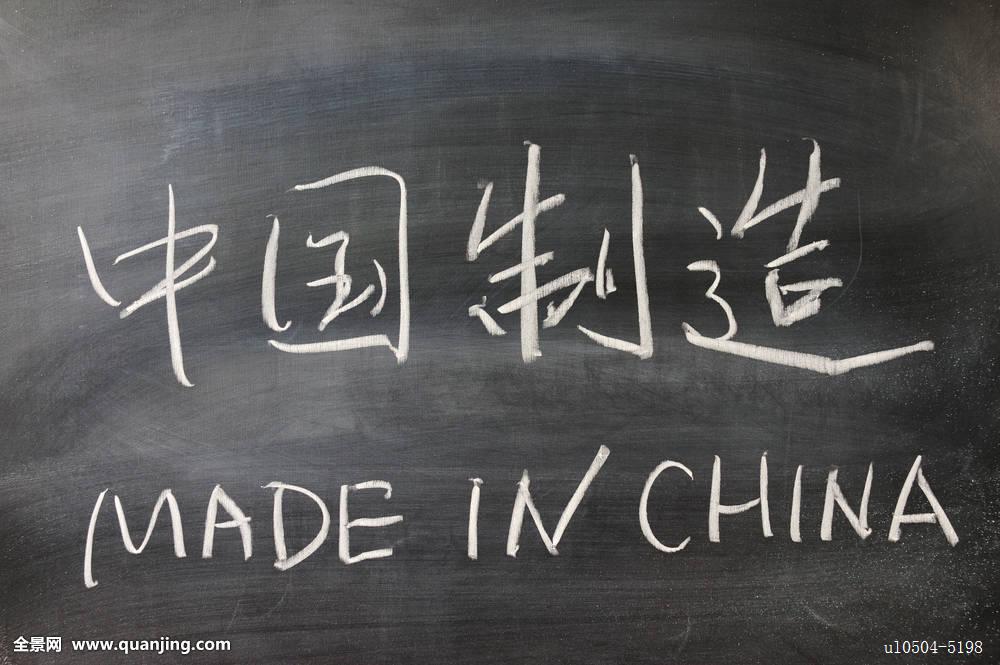 中国制造
MADE IN CHINA
全景网 www.quanjing.com
ul0504-5198